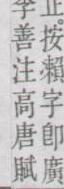 正。按賴字卽廣
李善注高唐賦